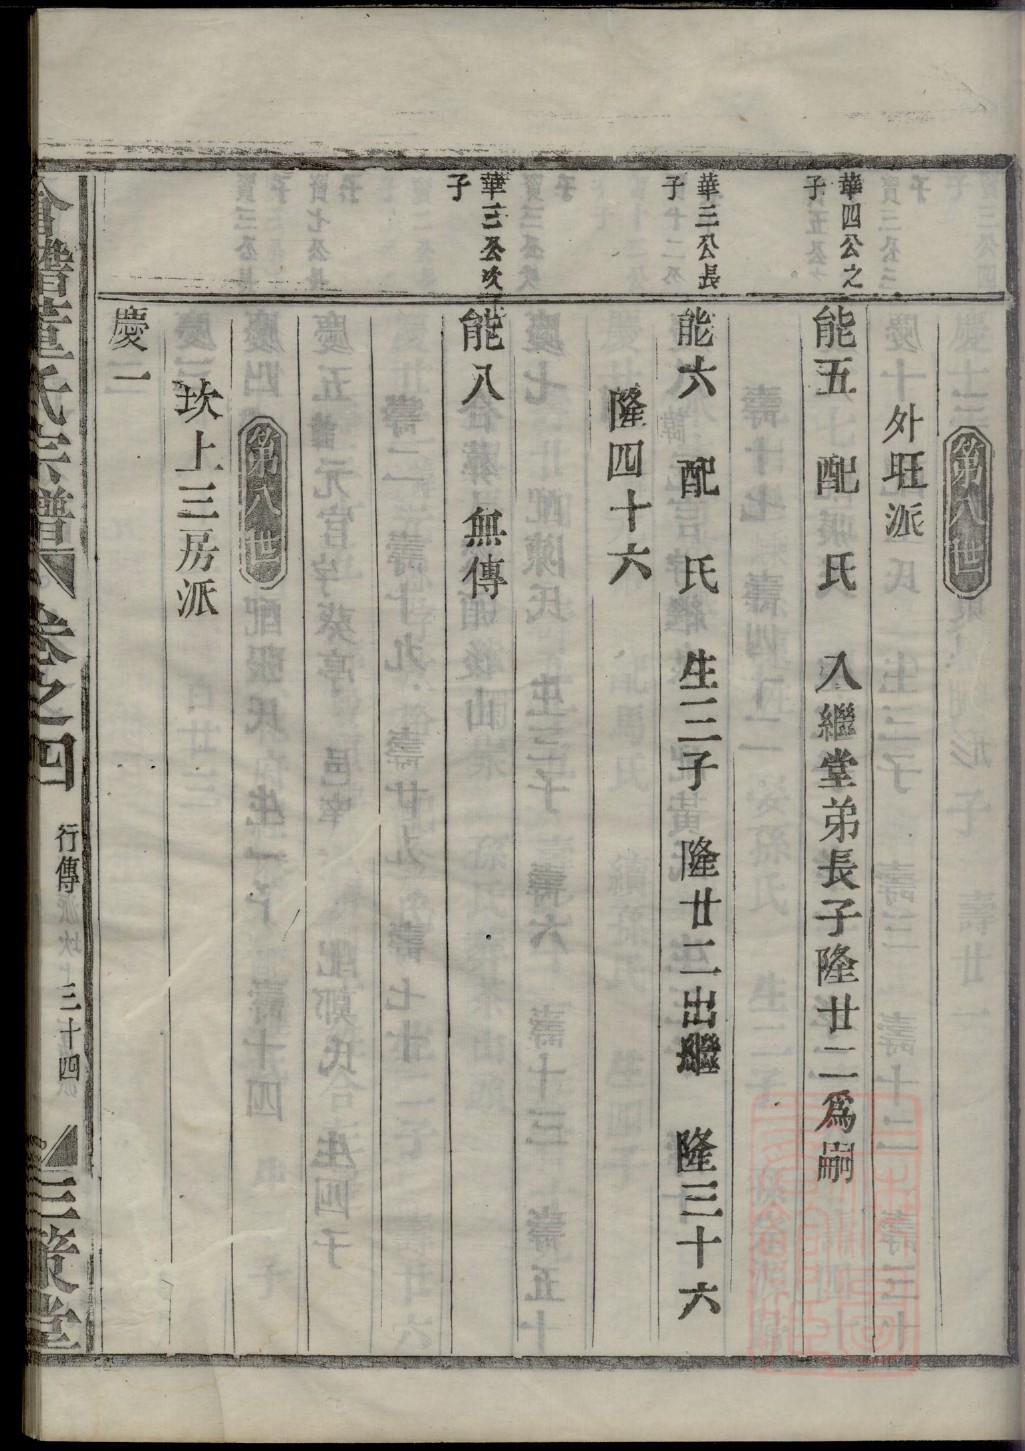 第八世
外旺派
華四公之子
能五 配 氏 入繼堂弟長子隆廿二爲嗣
華三公長子
能六 配 氏 生三子 隆廿二出繼 隆三十六
隆四十六
華三公次子
能八 無傳
第八世
坎上三房派
慶一
董氏宗譜
卷之四
行傳
三十四
三策堂